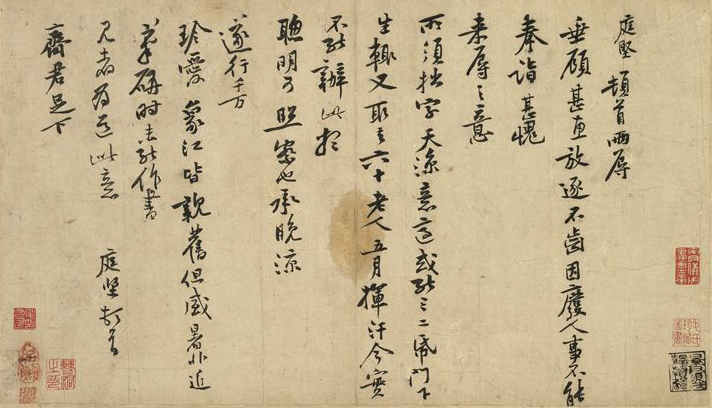 庭堅頓首兩辱
垂顧甚惠放逐不齒因廢人事不能
奉詣甚愧
來辱之意
所須拙字天涼意適或能三二紙門下
生輒又取去六十老人五月揮汗今實
不能辦此想
聰明可照察也承晚涼
遂行千万
珍愛象江皆親舊但盛暑非近
筆研時未能作書
見者為道此意 庭堅頓首
齊君足下